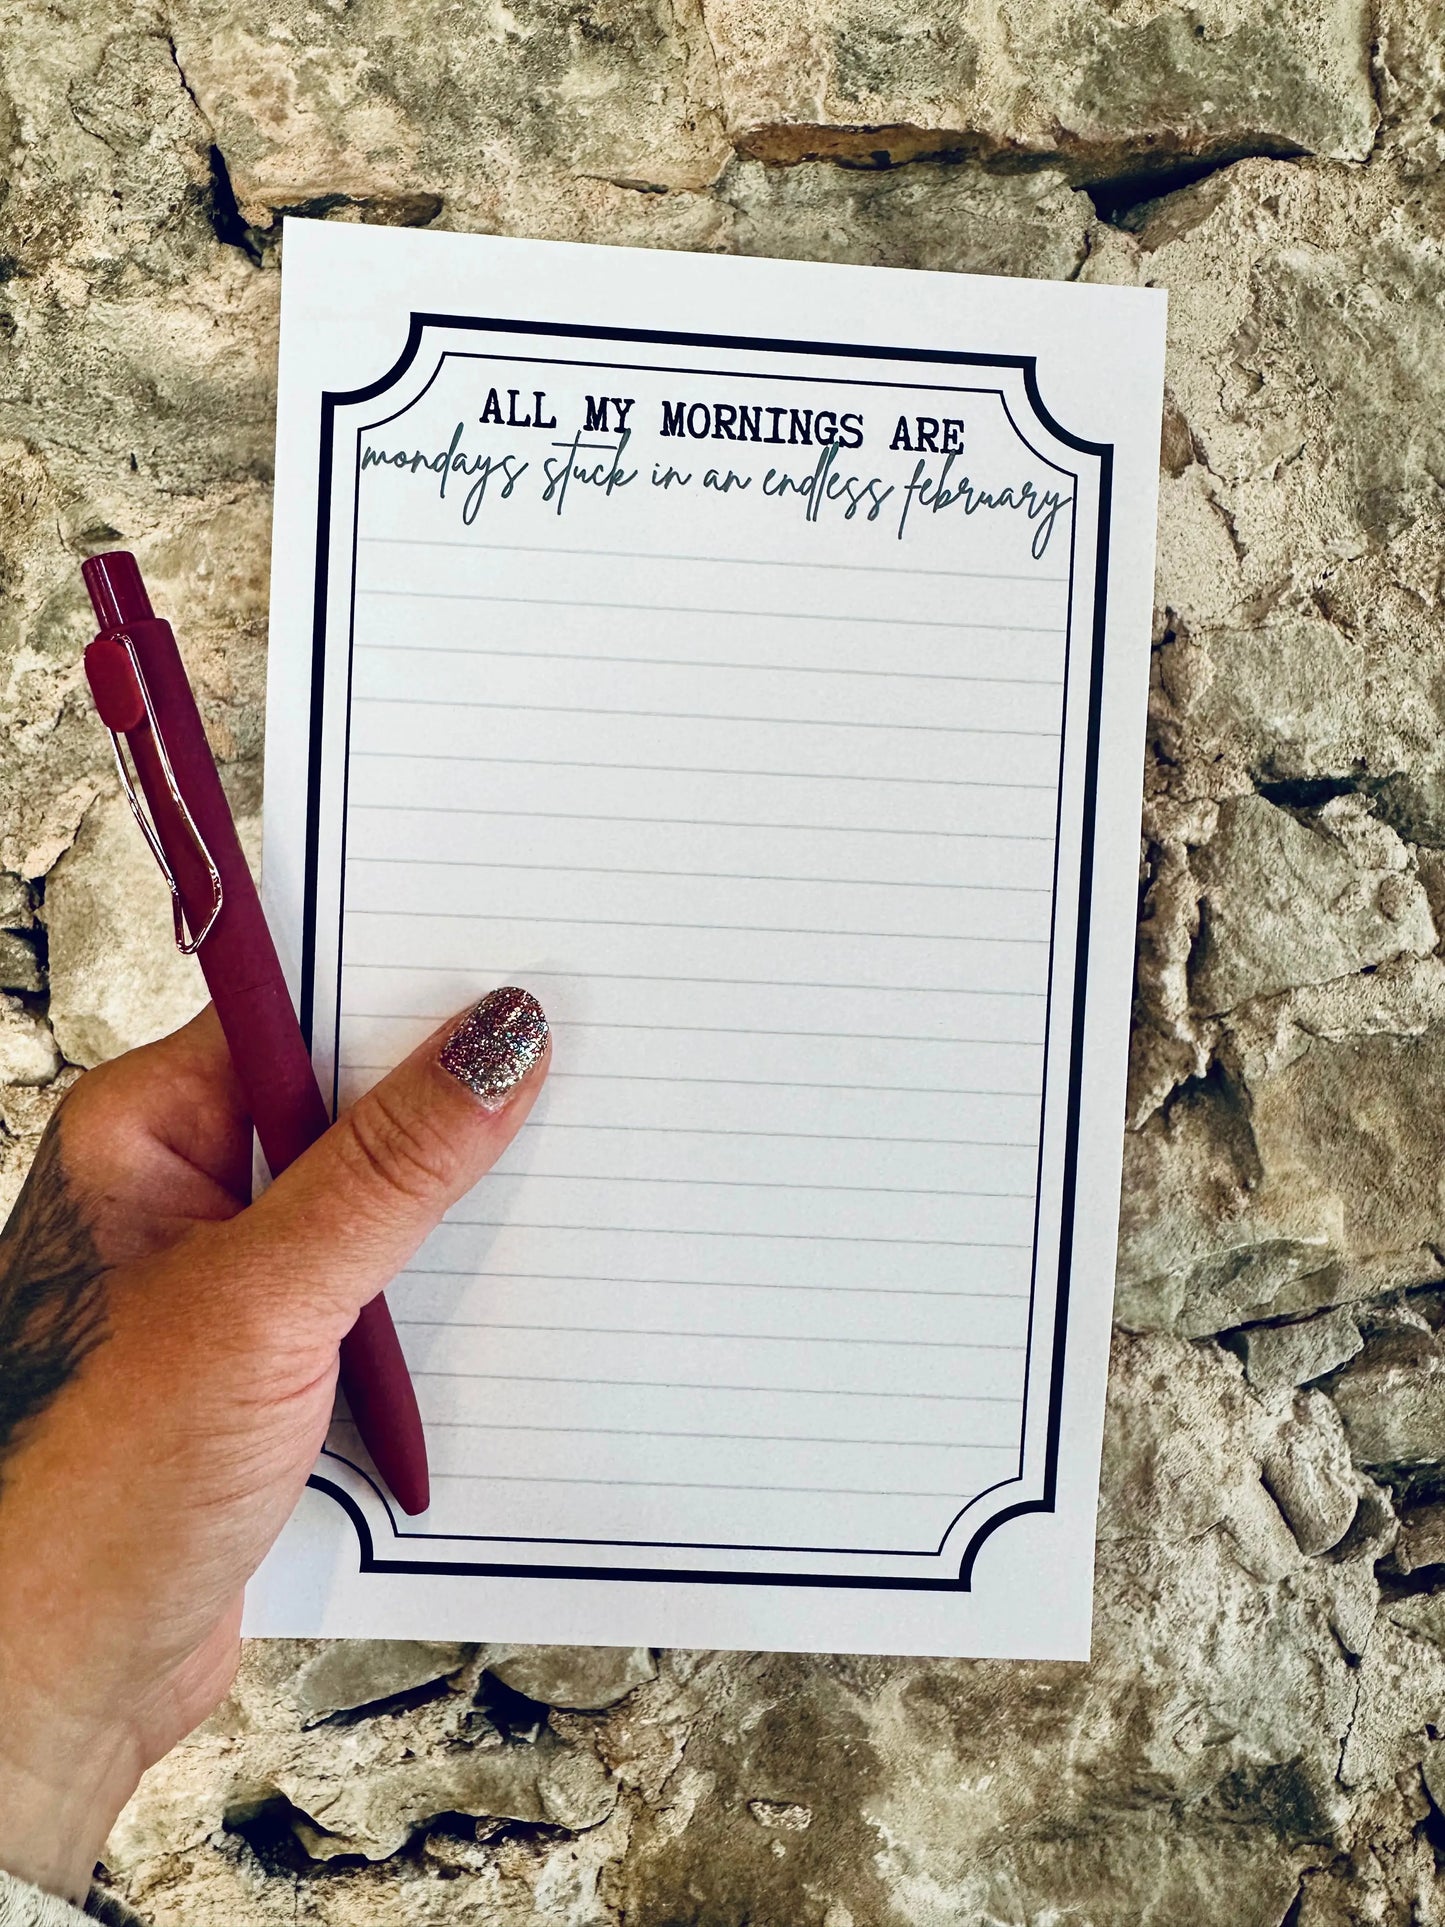 ALL MY MORNINGS ARE
mondays stuck in an endless february